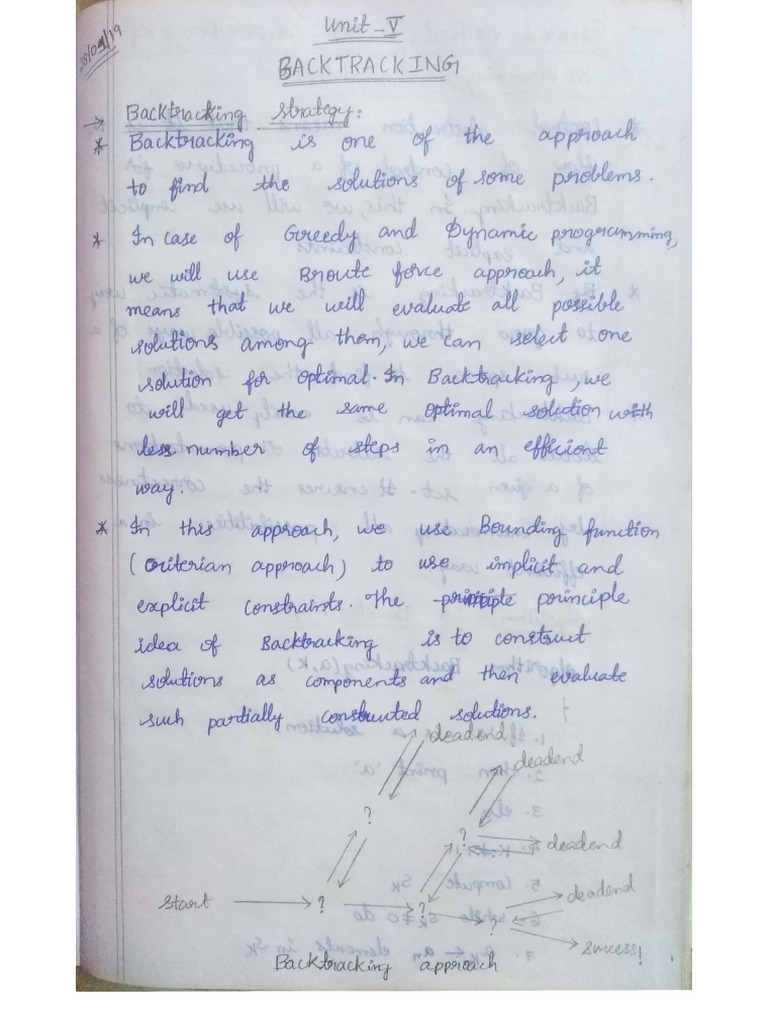 Unit - V
BACKTRACKING
→ Backtracking strategy:
* Backtracking is one of the approach
to find the solutions of some problems.
* In case of Greedy and Dynamic programming,
we will use Broute force approach, it
means that we will evaluate all possible
solutions among them, we can select one
solution for optimal. In Backtracking, we
will get the same optimal solution with
less number of steps in an efficient
way.
* In this approach, we use Bounding function
(Criterian approach) to use implicit and
explicit constraints. The principle
idea of Backtracking is to construct
solutions as components and then evaluate
such partially constructed solutions.
deadend
deadend
?
? deadend
deadend
start ? ?
?
success!
Backtracking approach